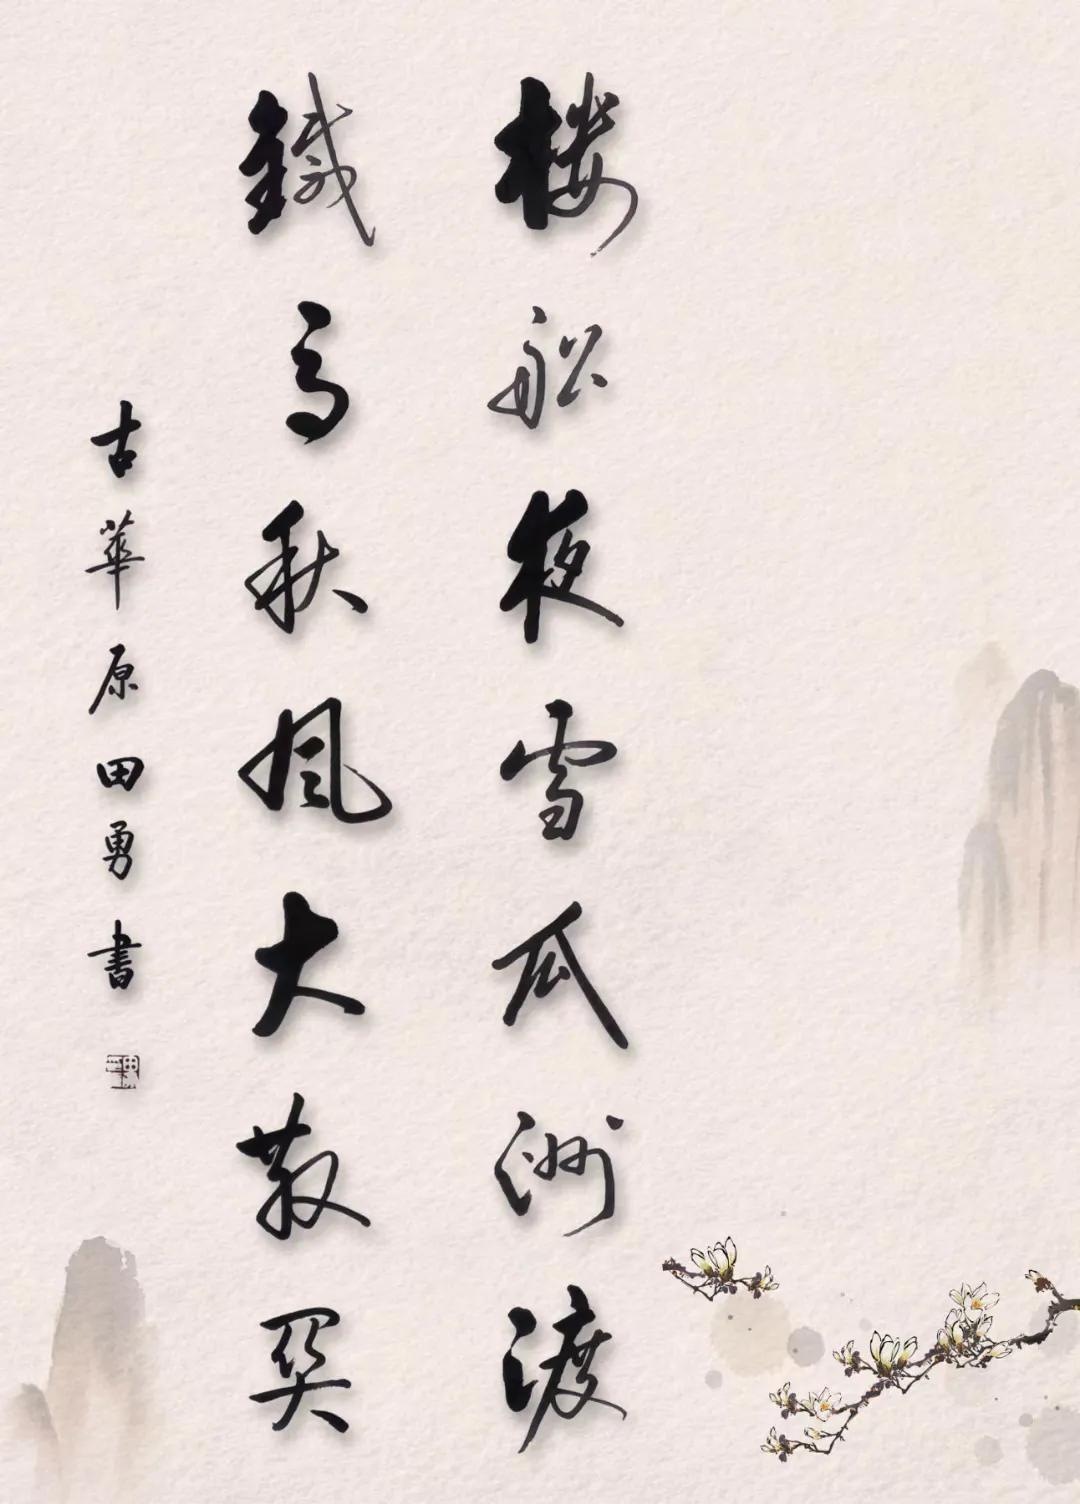 楼船夜雪瓜洲渡
鐵马秋风大散关
古華原田勇書